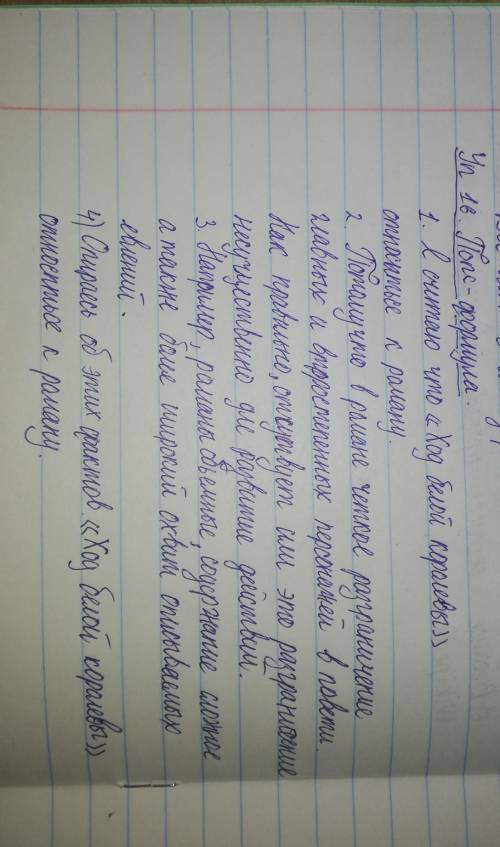 Уп 16. Попс-формула.
1. Я считаю что «Ход белой королевы»
относитье к роману.
2. Потамучто в романе четкое разграничение
главных и второстепенных персонажей в повети.
Как правильно, отсутвует или это разграничие
несущуственно для развитие действии.
3. Например, романы объемные, содержание сложное
а также боле широкий охват описываемых
евлений.
4) Опиресь об этих фактов. «Ход белой королевы»
относитье к роману.